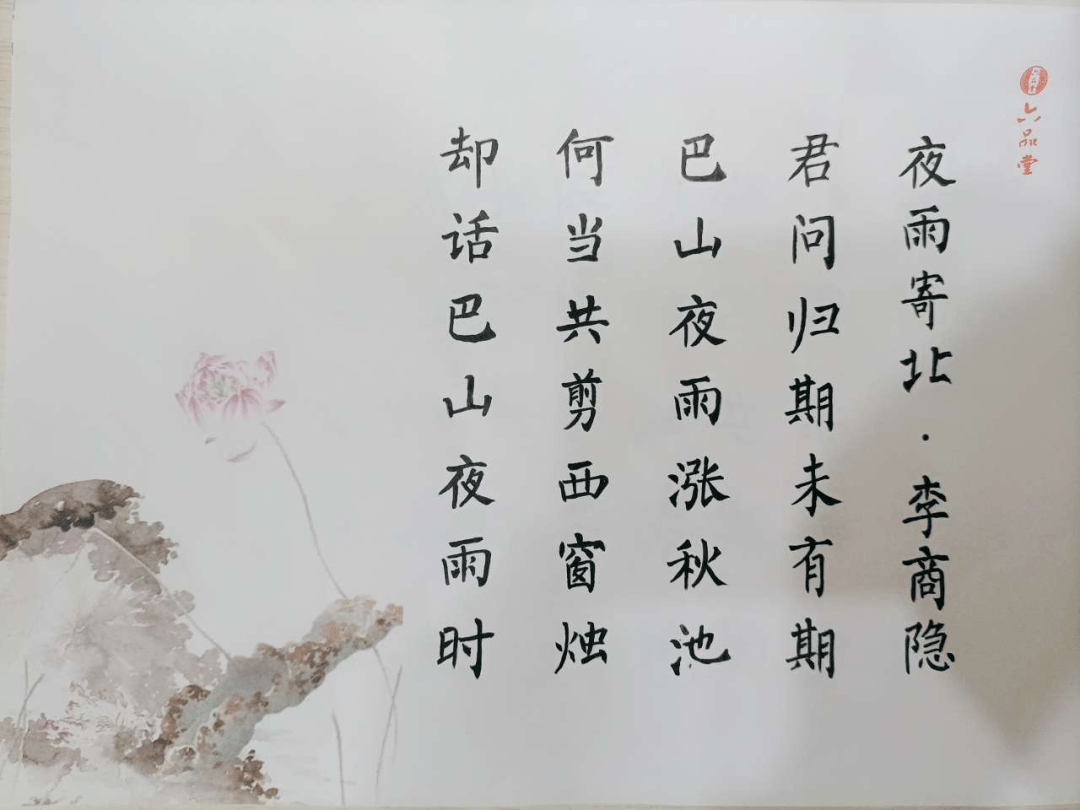 六品堂
夜雨寄北·李商隐
君问归期未有期
巴山夜雨涨秋池
何当共剪西窗烛
却话巴山夜雨时